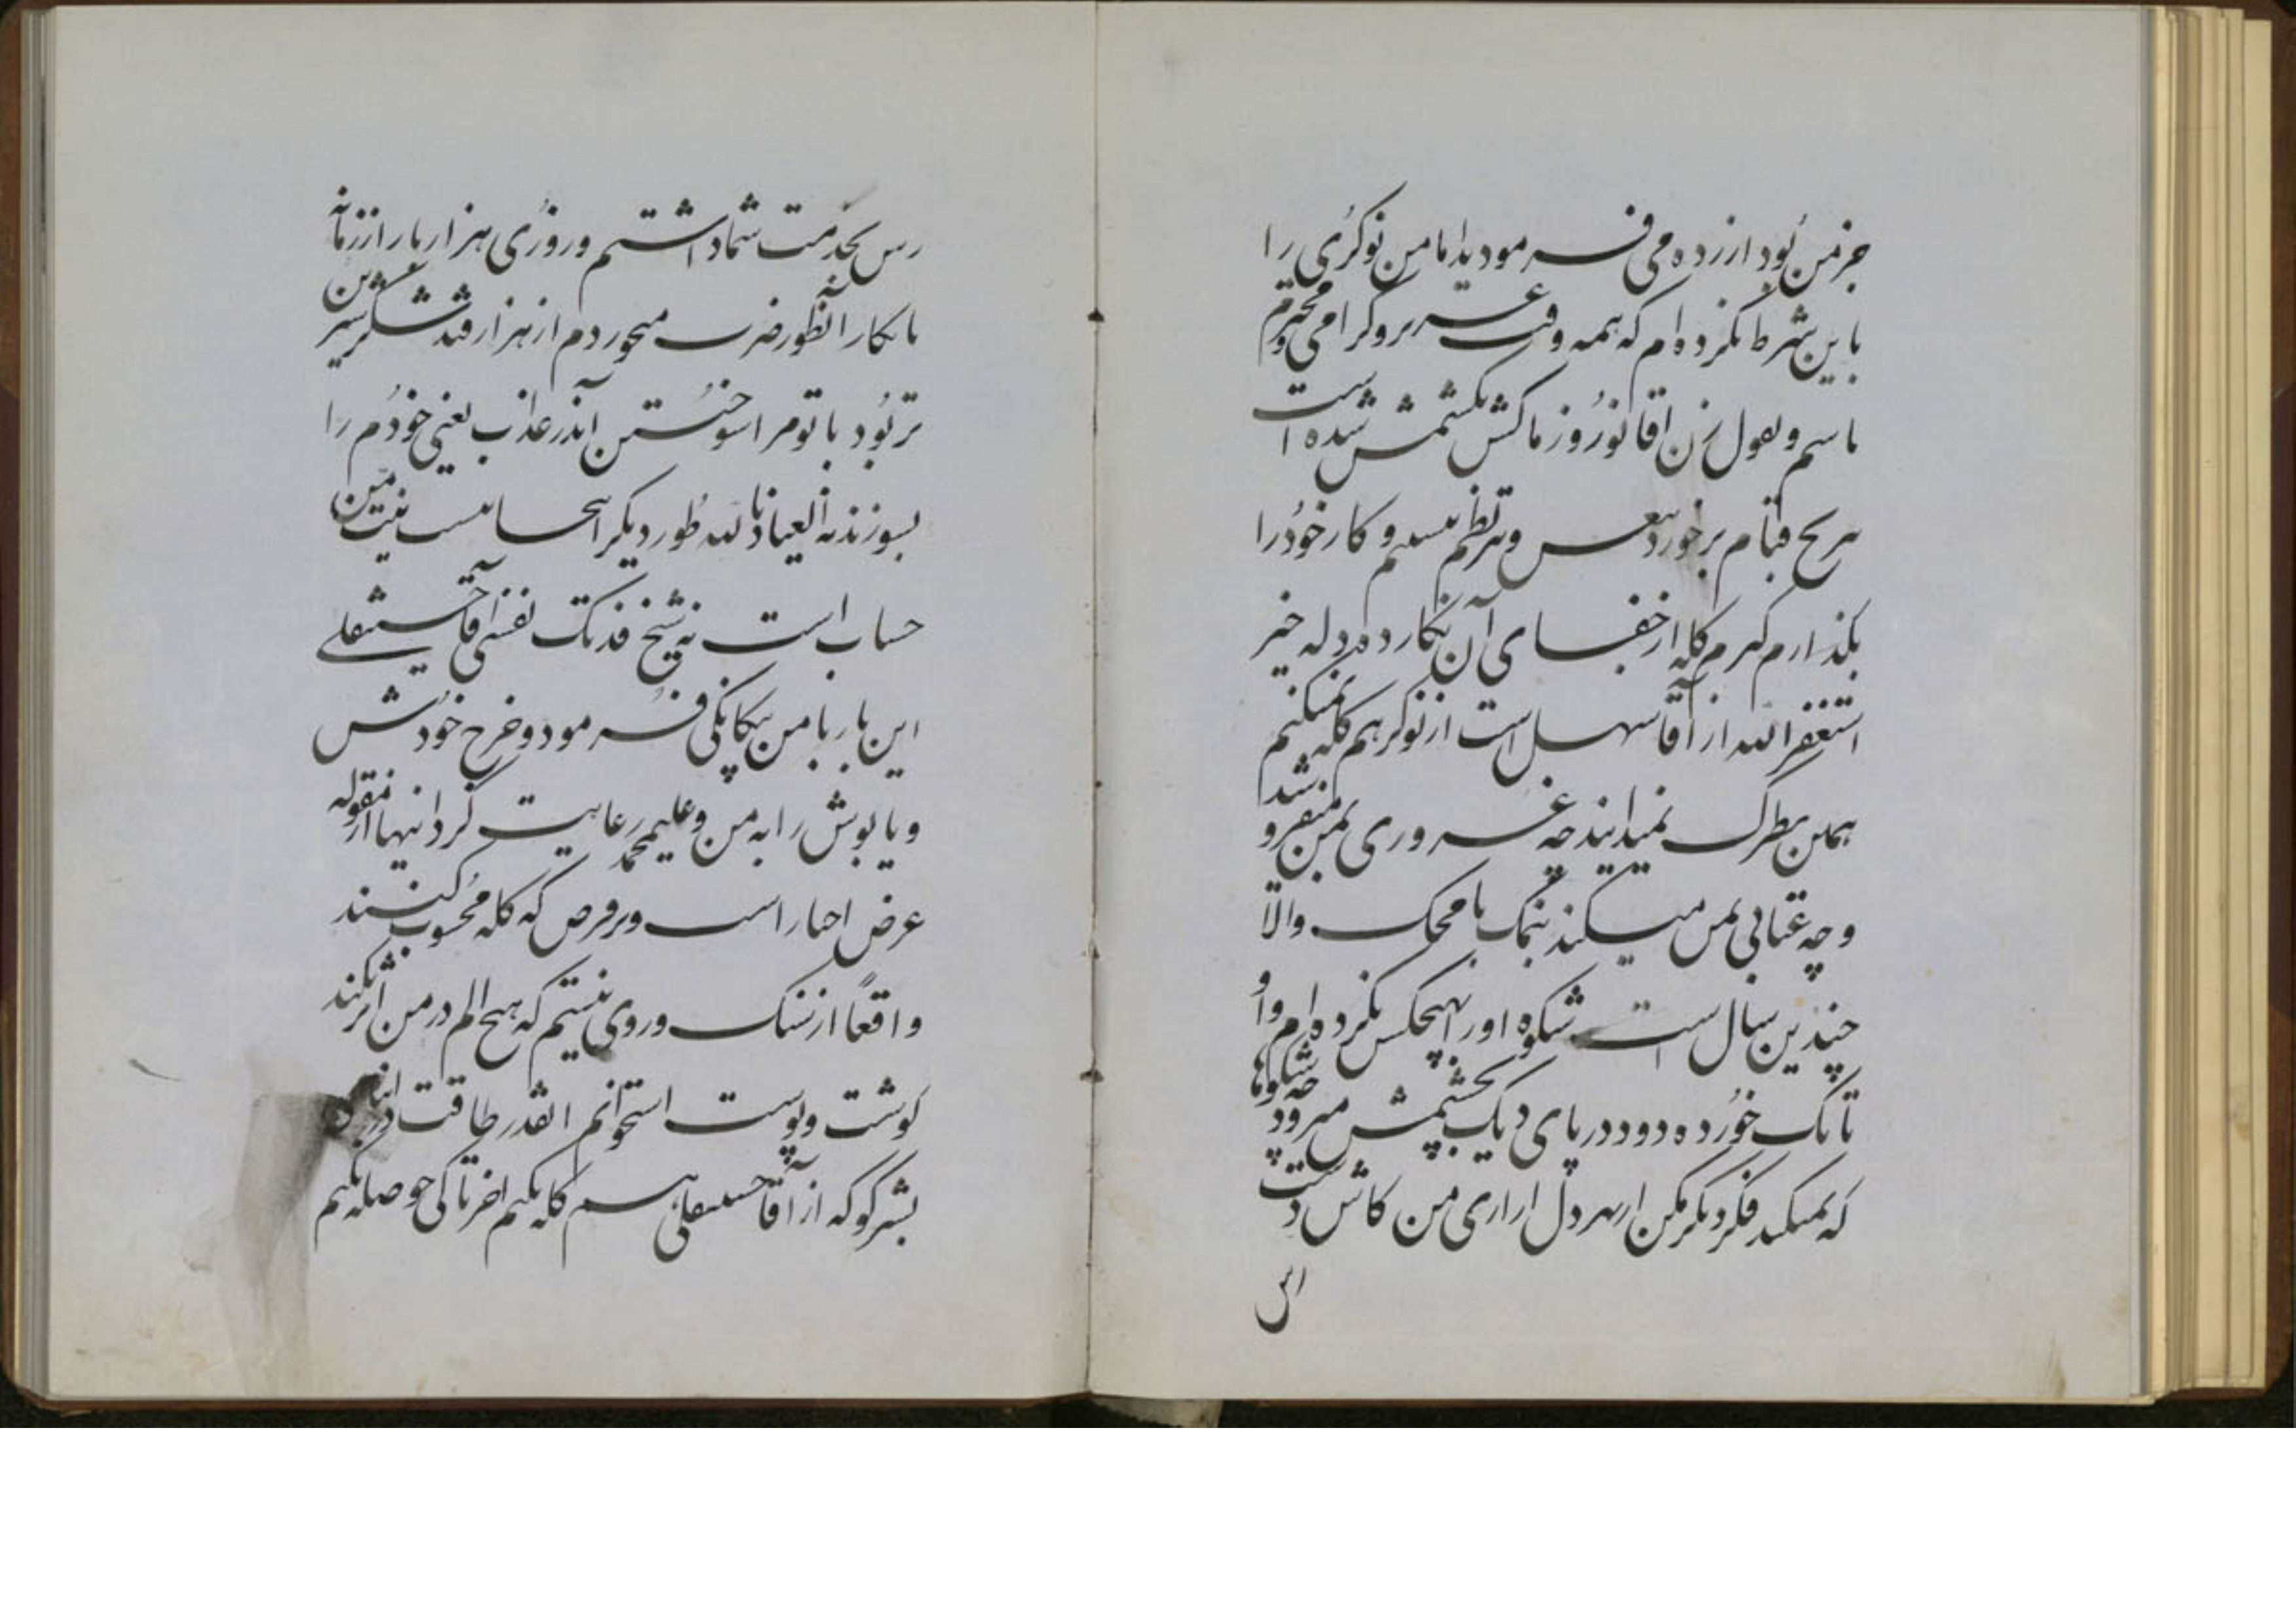 جز من بود ازرده می فرمودید اما من نوکری را
باین شرط نکرده ام که همه وقت عزیز و گرامی و محترم
باسم و بقول زن اقا نوروز ما کش کشمش شده است
بر خورد و کار خود را
بگذارم کیرم کله از خفای آن بکار ده دله خیر
استغفر الله از آقا سهل است از نوکر هم کله نمیکنم
همین نظرک نمیدانید چه غروری بمن میفروشد
و چه عتابی بمن میکند بنمک با محک والا
چندین سال است شکوه او را بهیچکس نکرده ام و او
تا نک خورده دود در پای دیک بچشمش میرود چه شکوها
که نمیکند فکر دیگر مکن از سر دل ازاری من کاش دست
رس بخدمت شما داشتم و روزی هزار بار از زمانه
ناکار آنطور ضرب میخوردم از هزار قند شکر شیرین
تر بود با تو مرا سوختن اندر عذاب یعنی خودم را
بسوزند نه العیاذ بالله طور دیگر اینجا نیست نیت من
حساب است نه شیخ فدتک نفسی آقا حسینقلی
این بار با من بیکانکی فرمود و خرج خودش
و یابویش را به من و علیمحمد رعایت کرد اینها از مقوله
عرض اخبار است و بر فرض که کله محسوب کنند
واقعاً از سنک و روی نیستم که هیچ الم در من اثر نکند
کوشت و پوست استخوانم انقدر طاقت دارد
بشیر کو که از آقا حسینقلی هم کله نکنم اخر تا کی حوصله بکنم